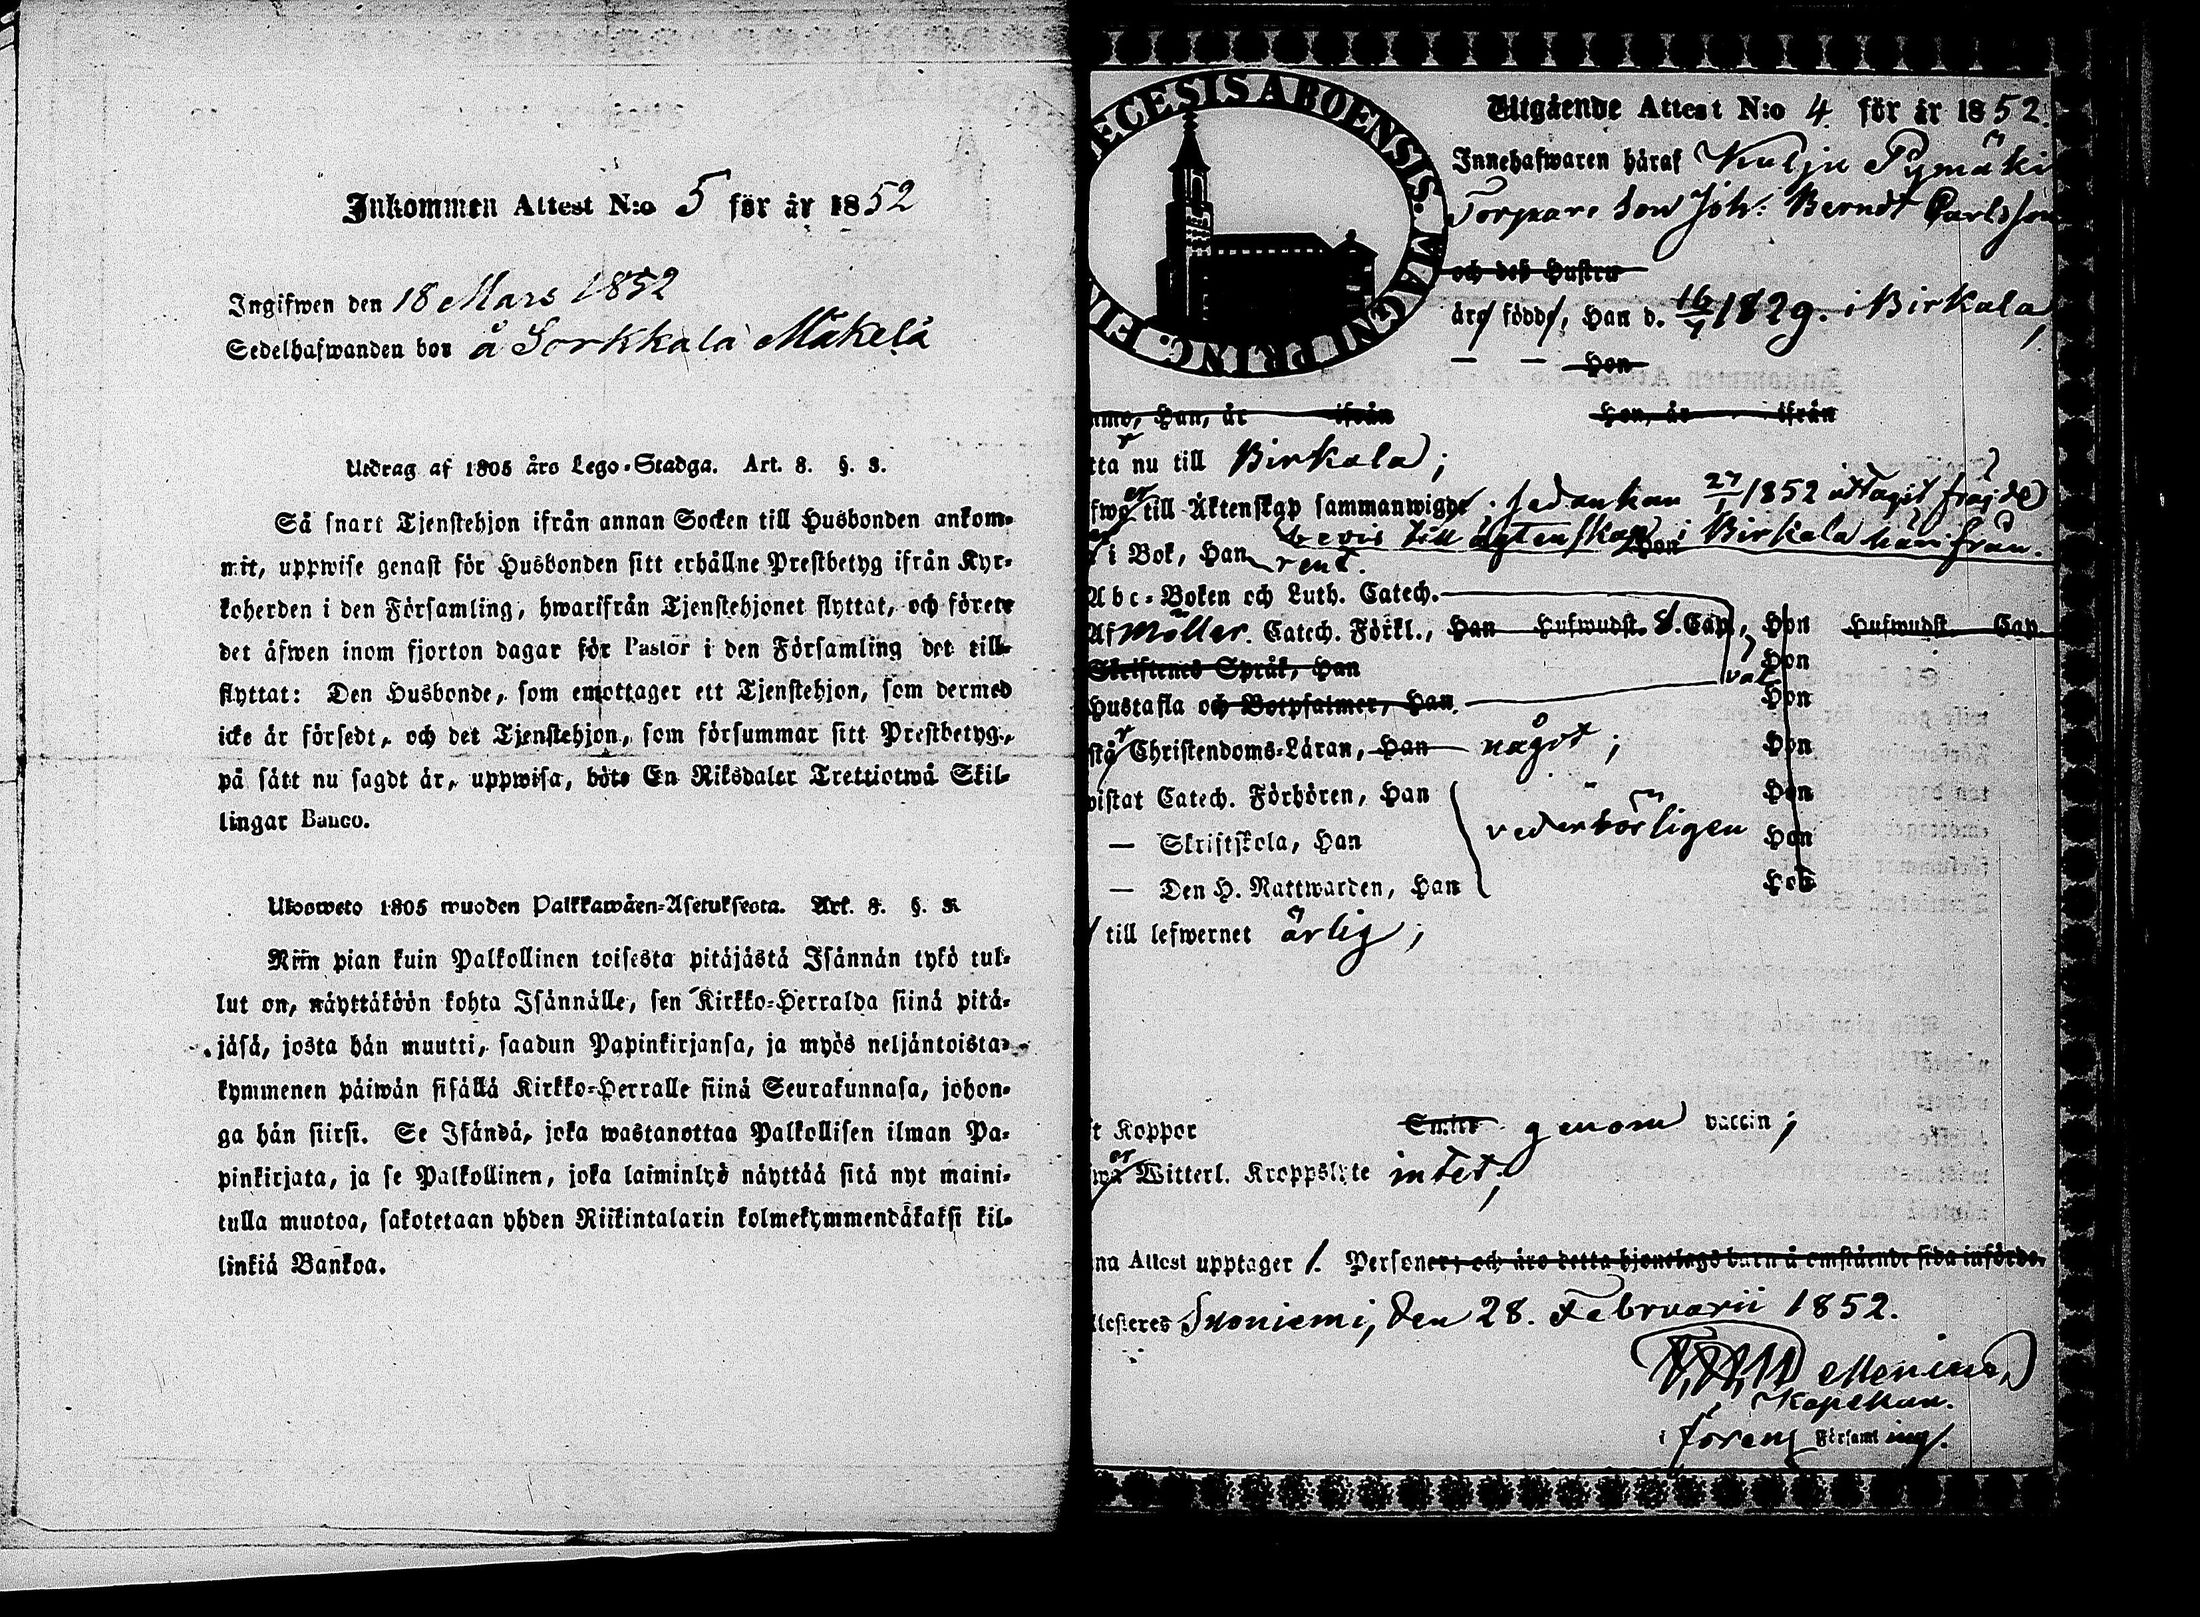 Inkommen Attest N:o 5 för år 1852
Ingifwen den 18 Mars 1852
Sedelhafwanden bor å Sorkkala Mäkelä
Utdrag af 1805 års Lego-Stadga. Art. 8. §. 3.
Så snart Tjenstehjon ifrån annan Socken till Husbonden ankom-
mit, uppwise genast för Husbonden sitt erhållne Prestbetyg ifrån Kyr-
koherden i den Församling, hwarifrån Tjenstehjonet flyttat, och förete
det äfwen inom fjorton dagar för Pastor i den Församling det till-
flyttat: Den Husbonde, som emottager ett Tjenstehjon, som dermed
icke är försedt, och det Tjenstehjon, som försummar sitt Prestbetyg,
på sätt nu sagdt är, uppwisa, böte En Riksdaler Trettiotwå Skil-
lingar Banco.
Ulosweto 1805 wuoden Palkkawäen-Asetuksesta. Art. 8. §. 3.
Niin pian kuin Palkollinen toisesta pitäjästä Isännän tykö tul-
lut on, näyttäköön kohta Isännälle, sen Kirkko-Herralda siinä pitä-
jäsä, josta hän muutti, saadun Papinkirjansa, ja myös neljäntoista-
kymmenen päiwän sisällä Kirkko-Herralle siinä Seurakunnasa, johon-
ga hän siirsi. Se Isändä, joka wastanottaa Palkollisen ilman Pa-
pinkirjata, ja se Palkollinen, joka laiminlyö näyttää sitä nyt maini-
tulla muotoa, sakotetaan yhden Riikintalarin kolmekymmendäkaksi kil-
linkiä Bankoa.
ECESIS ABOENSIS. MAGNI PRINC. FIN
Utgående Attest N:o 4 för år 1852.
Innehafwaren häraf Kulju Pymäki
Torpare Son Joh. Berndt Carlsson
och deß Hustru
äro födde, Han d. 16/7 1829. i Birkala,
— — Hon
mno, Han, år ifrån Hon, år ifrån
tta r nu till Birkala;
fwa er till Äktenskap sammanwigde. sedan han 27/1 1852 uttagit frägde
bevis till ägtenskap i Birkala härifrån.
i Bok, Han rent. Hon
Abc-Boken och Luth. Catech.
Af Möller. Catech. Förkl., Han Hufwudst. 8. Cap., Hon Hufwudst. Cap.
Skriftenes Språk, Han väl Hon
Hustafla och Botpsalmer, Han Hon
stå r Christendoms-Läran, Han något; Hon
wistat Catech. Förhören, Han Hon
— Skriftskola, Han vederbörligen Hon
— Den H. Nattwarden, Han Hon
till lefwernet ärlig;
t Koppor Smitt genom vaccin;
wa er Witterl. Kroppslyte intet,
na Attest upptager 1. Personer, och äro detta hjonelags barn å omstående sida införde.
ttesteres Suoniemi, den 28. Februarii 1852.
Kapellan.
i förenz Församling.